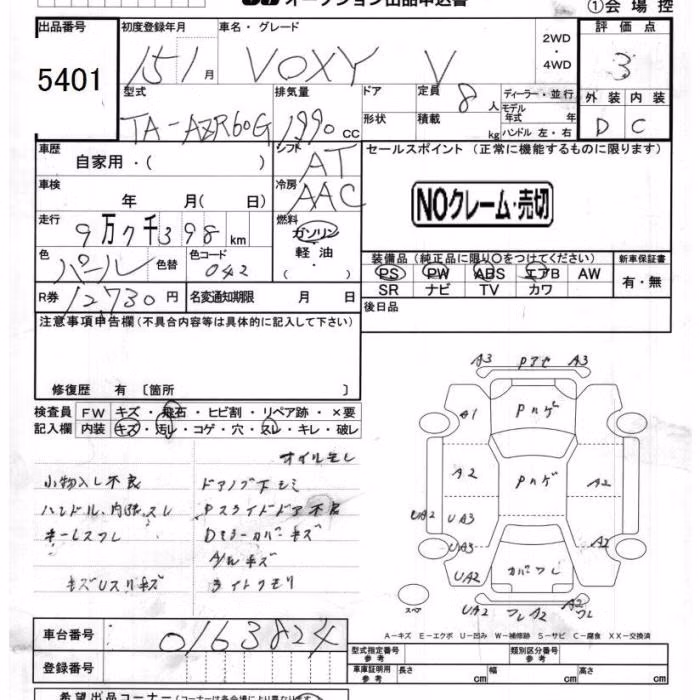 オークション出品申込書
①会場控
出品番号
5401
初度登録年月
15 1 月
車名・グレード
VOXY V
2WD
・
4WD
評価点
3
型式
TA-AZR60G
排気量
1990 cc
ドア
形状
定員
8 人
積載
kg
ディーラー・並行
モデル
年式 年
ハンドル 左・右
外装 内装
D C
車歴
自家用・( )
シフト
AT
セールスポイント (正常に機能するものに限ります)
NOクレーム・売切
車検
年 月( 日)
冷房
AAC
走行
9万7千398 km
燃料
ガソリン
軽油
( ・ )
色
パール
色替
色コード
042
装備品(純正品に限り○をつけてください)
PS PW ABS エアB AW
SR ナビ TV カワ
新車保証書
有・無
R券 12730 円
名変通知期限 月 日
後日品
注意事項申告欄(不具合内容等は具体的に記入して下さい)
修復歴 有 〔箇所 〕
検査員
記入欄
FW キズ・飛石・ヒビ割・リペア跡・×要
内装 キズ・汚レ・コゲ・穴・スレ・キレ・破レ
オイルモレ
小物入レ不良
ドアノブ下シミ
ハンドル、内張スレ
Pスライドドア不良
キーレスフレ
Dミラーカバーキズ
A/Wキズ
キズUスリキズ
ライトクモリ
A3 A3
A1
Pハゲ
A2
Pハゲ
A2
UA2
UA3
UA3
A2
UA2
UA2
A2
スペア
A-キズ E-エクボ U-凹み W-補修跡 S-サビ C-腐食 XX-交換済
車台番号
0163824
登録番号
型式指定番号
参考
類別区分番号
参考
車庫証明用
参考
長さ cm 幅 cm 高さ cm
希望出品コーナー